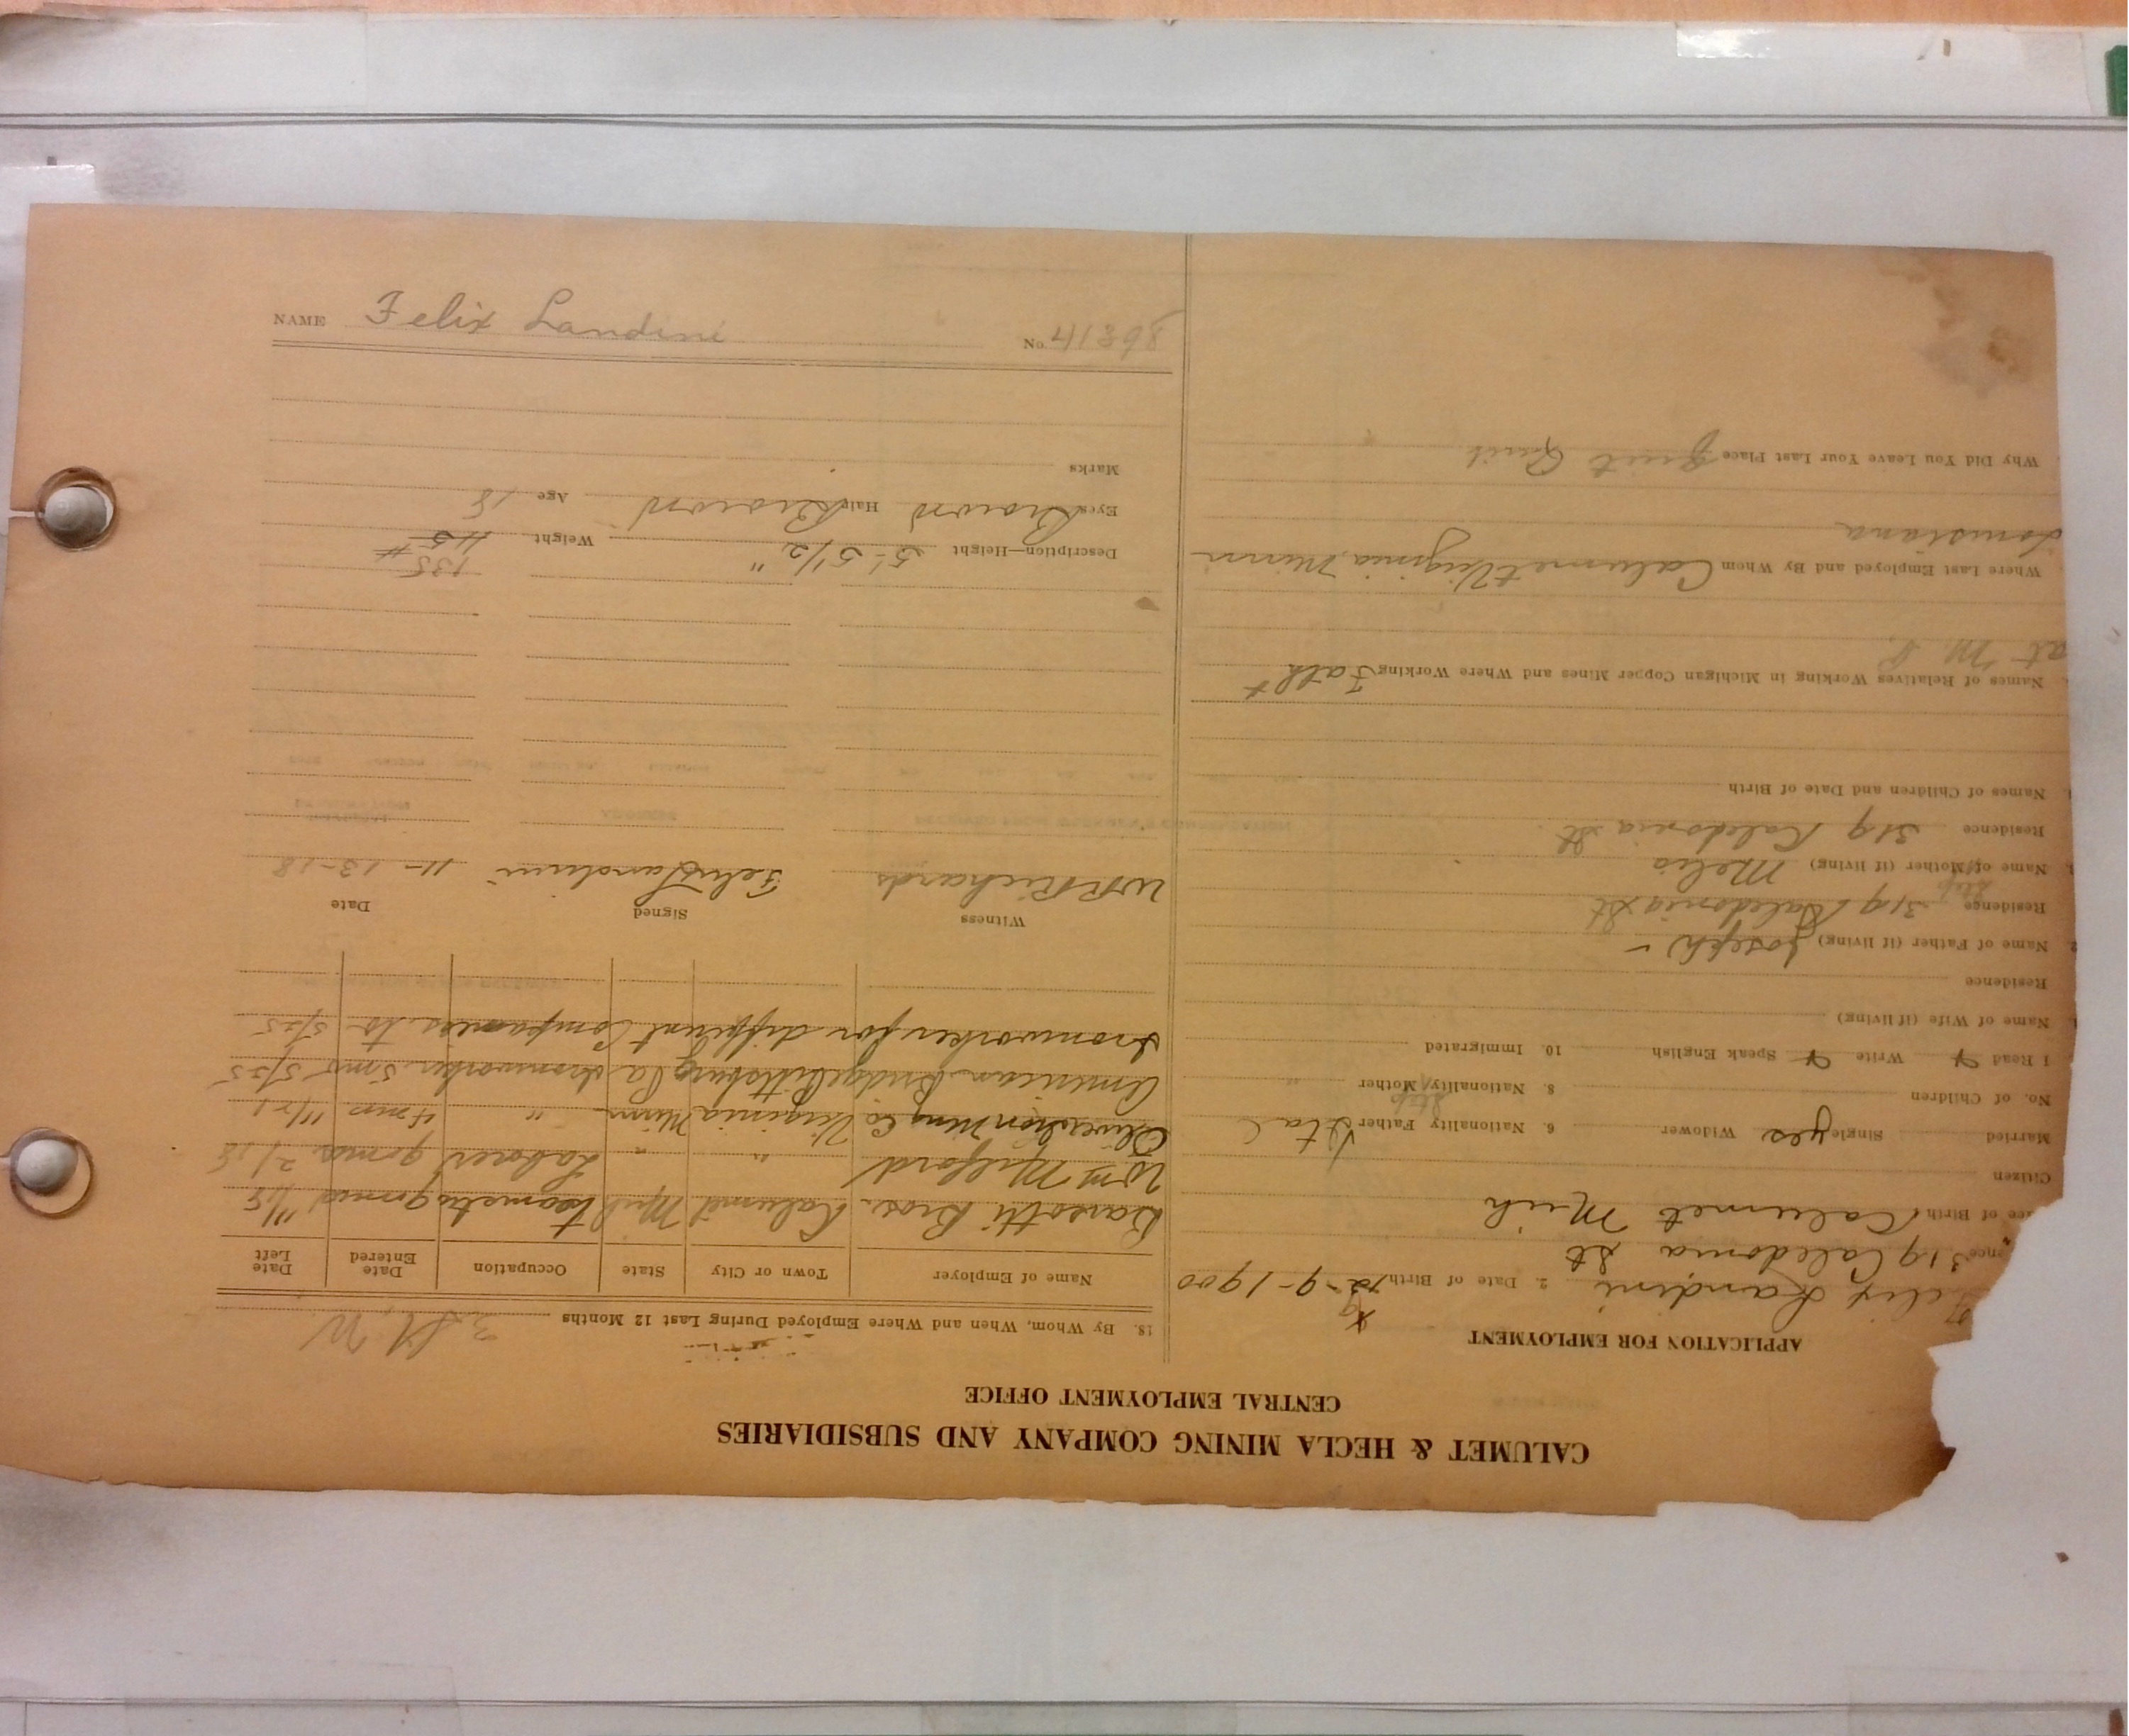 CALUMET & HECLA MINING COMPANY AND SUBSIDIARIES
CENTRAL EMPLOYMENT OFFICE
APPLICATION FOR EMPLOYMENT
Felix Landini 2. Date of Birth 12-9-1900
319 Caledonia St
ce of Birth Calumet Mich
Citizen
Married Single yes Widower 6. Nationality Father Ital
No. of Children 8. Nationality Step Mother "
1 Read Write Speak English 10. Immigrated
Name of Wife (if living)
Residence
Name of Father (if living) Joseph -
Residence 319 Caledonia St
Name of Step Mother (if living) Melia
Residence 319 Kaledonia St
Names of Children and Date of Birth
Names of Relatives Working in Michigan Copper Mines and Where Working Fath
at M.
Where Last Employed and By Whom Calumet Virginia, Minn
Louisiana
Why Did You Leave Your Last Place Quit Quit
18. By Whom, When and Where Employed During Last 12 Months
Name of Employer Town or City State Occupation Date Entered Date Left
Bros. Calumet Mich teamster 9 mos 11/18
Wm Milford " " Laborer 9 mos 2/18
Oliver Iron Mng Co Virginia Minn " 4 mos 11/21
American Bridge Pittsburg Pa Ironworker 5 mos 5/25
Ironworker for different Companies to 5/25
Witness Signed Date
W R Richards Felix Landini 11-13-18
135
Description—Height 5'-5 1/2" Weight 115 #
Eyes Brown Hair Brown Age 18
Marks
NAME Felix Landini No. 41398